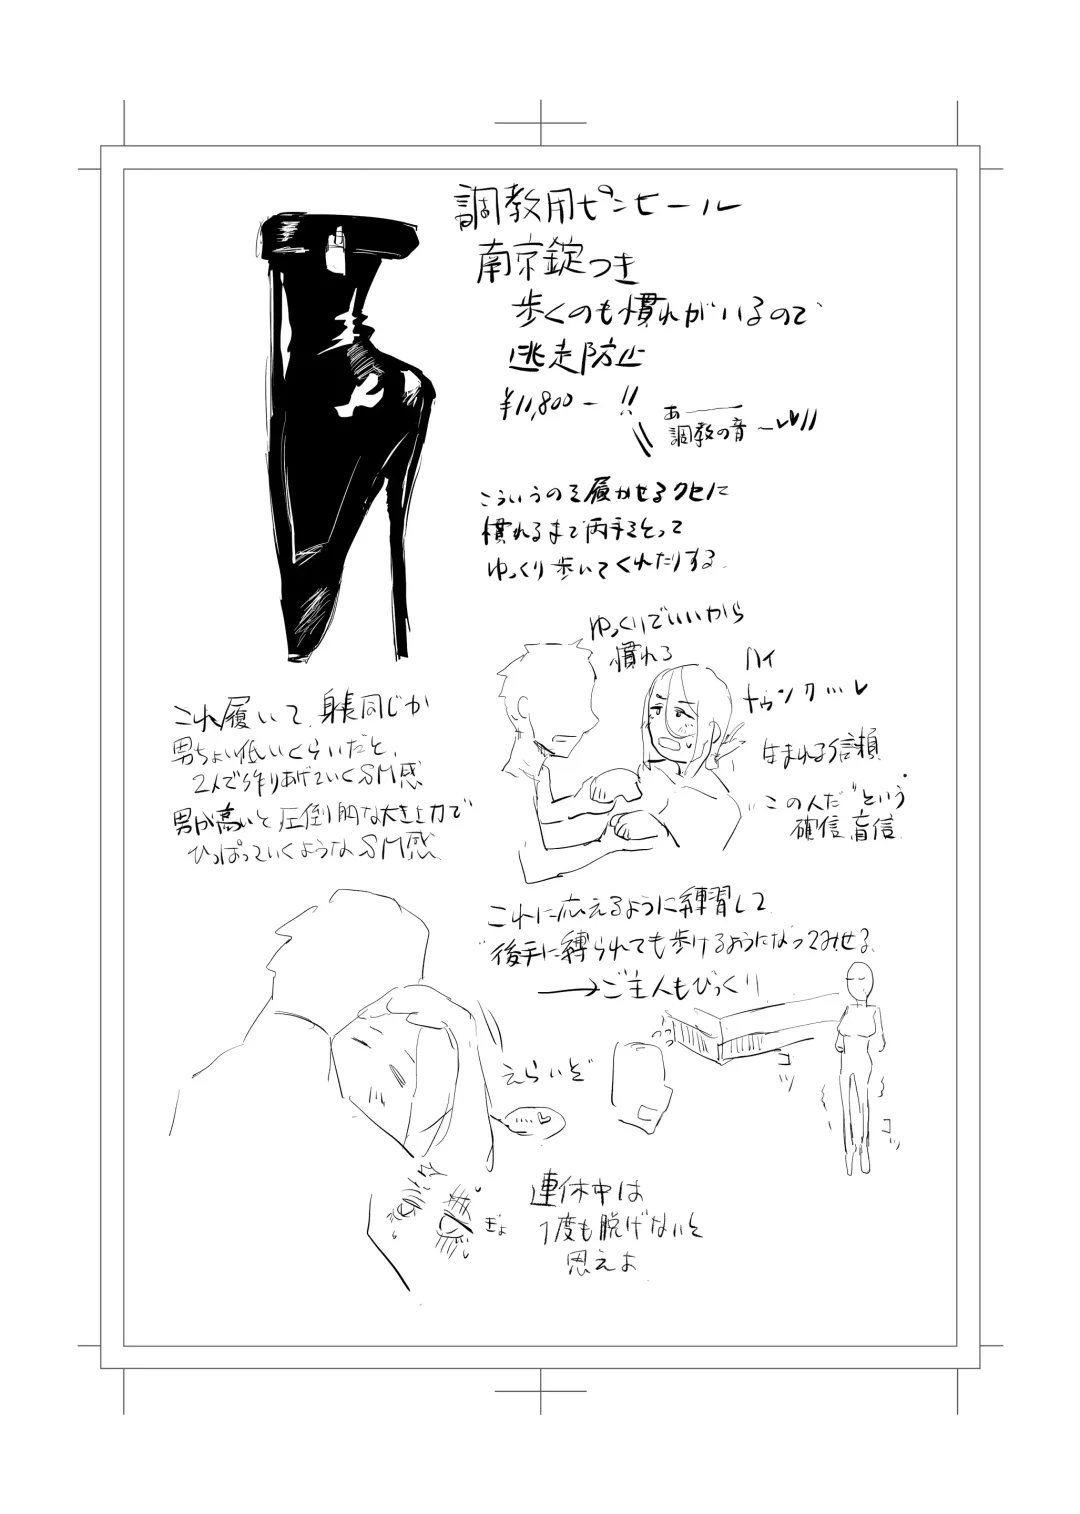 調教用ピンヒール
南京錠つき
歩くのも慣れがいるので
逃走防止
¥11,800-!!
あ──
調教の音〜♥♥!!
こういうのを履かせるクセに
慣れるまで両手をとって
ゆっくり歩いてくれたりする
ゆっくりでいいから
慣れろ
ハイ
トゥンク…♥
生まれる信頼
"この人だ"という
確信、盲信
これ履いて、身長同じか
男ちょい低いくらいだと、
2人で作りあげていくSM感
男が高いと圧倒的な大きな力で
ひっぱっていくようなSM感
これに応えるように練習して
後手に縛られても歩けるようになってみせる
→ご主人もびっくり
コッ
コッ
えらいぞ
‥‥♡
ぎょ
連休中は
1度も脱げないと
思えよ